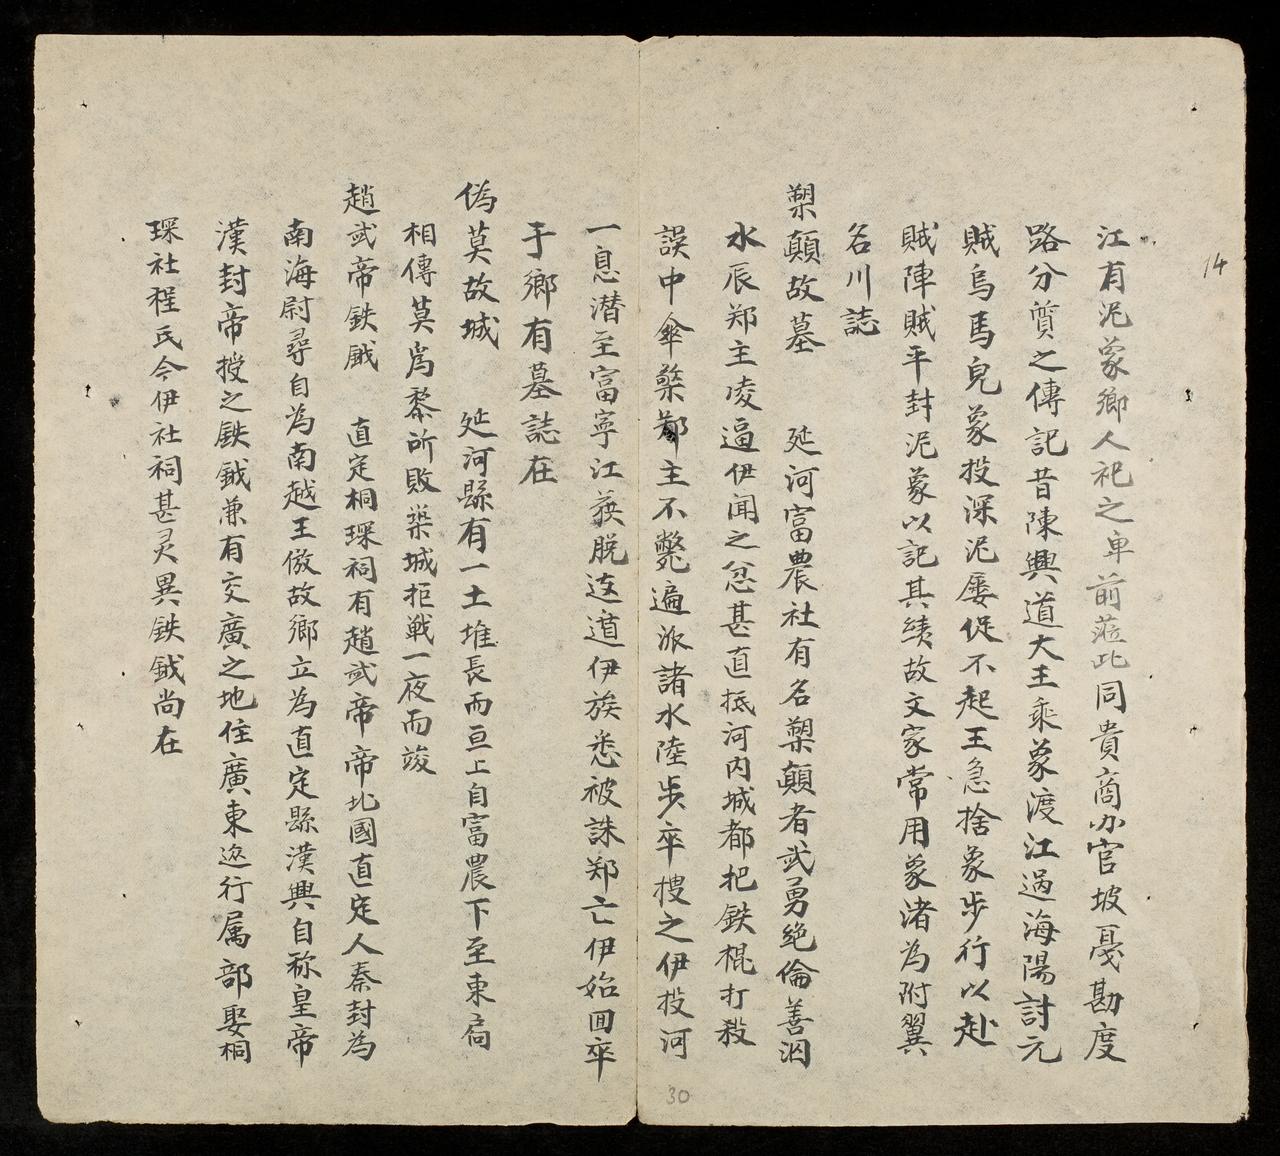 14
江有泥蒙鄉人祀之車前蒞此同貴商办官坡戞勘度
路分質之傳記昔陳興道大王乘象渡江過海陽討元
賊烏馬兒象投深泥屡促不起王急捨象步行以赴
賊陣賊平封泥蒙以記其績故文家常用象渚為附翼
名川誌
槊顛故墓 延河富農社有名槊顛者武勇絶倫善泅
水辰郑主凌逼伊聞之忿甚直抵河内城都把鉄棍打殺
誤中傘檠鄭主不斃遍派諸水陸步卒搜之伊投河
一息潜至富寧江獲脱迨道伊族悉被誅郑亡伊始囬卒
于鄉有墓誌在
偽莫故城 延河縣有一土堆長而亘上自富農下至東扃
相傳莫爲黎所敗築城拒戦一夜而竣
趙武帝鉄戉 直定桐琛祠有趙武帝帝北國直定人秦封為
南海尉尋自為南越王倣故鄉立為直定縣漢興自称皇帝
漢封帝授之鉄鉞兼有交廣之地住廣東巡行属部娶桐
琛社程氏今伊社祠甚灵異鉄鉞尚在
30